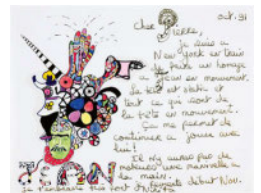 oct. 91
cher Pierre,
je suis à
New York en train
de faire un homage
à Jean en mouvement.
la tête est statique et
tout ce qui sort de
la tête en mouvement.
Ça me permet de
continuer à jouer avec
lui!
Il n'y aura pas de
moteur
la main.
début Nov.
JEAN
Je t'embrasse très fort